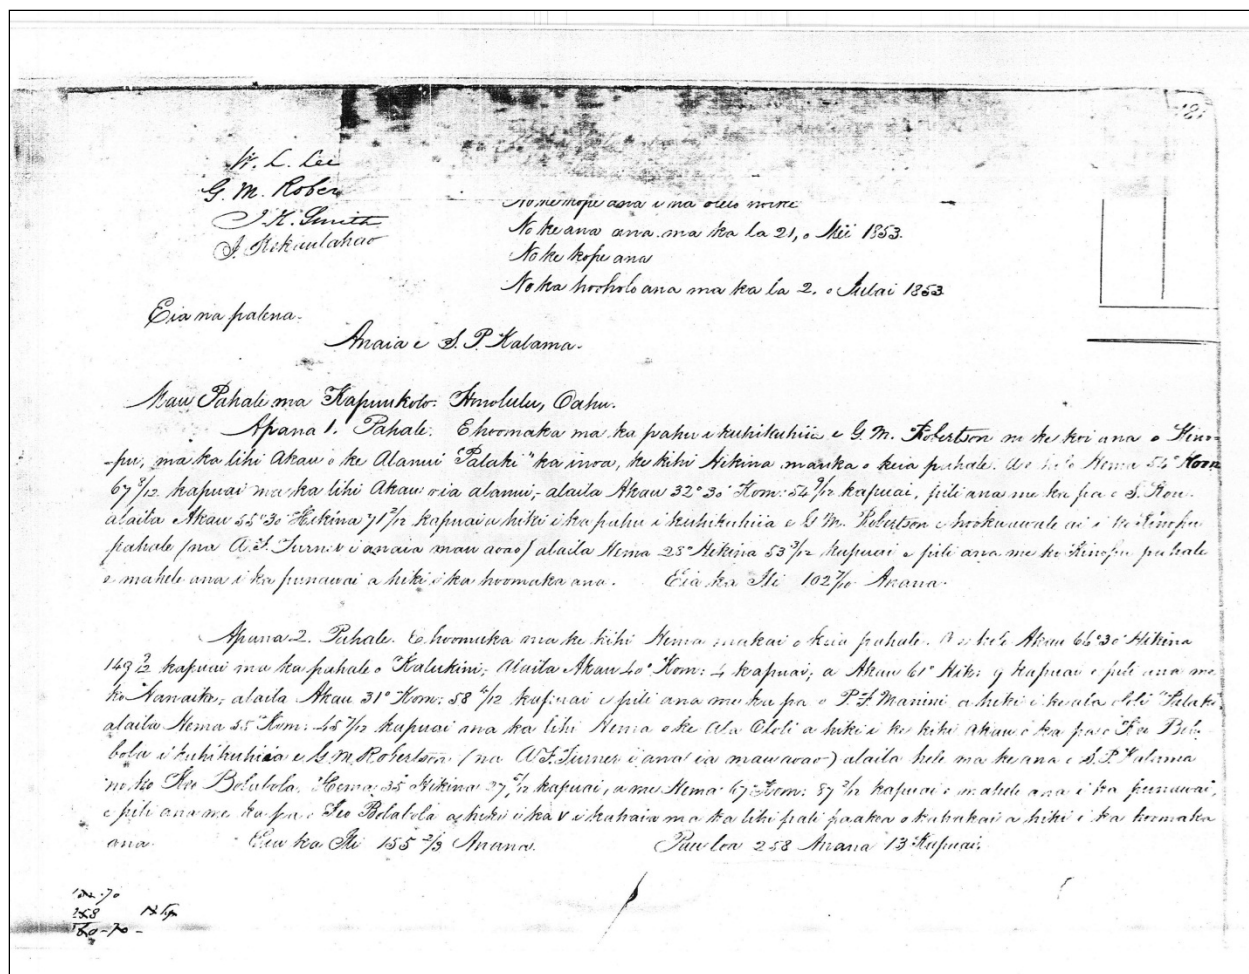 181
W. L. Lee
G. M. Rober
J. K. Smith
J. Kekaulahao
No ke kope ana i na olelo
No ke ana ana ma ka la 21, o Mei 1853.
No ke kope ana
No ka hooholo ana ma ka la 2. o Iulai 1853
Eia na palena.
Anaia e S. P. Kalama.
Mau Pahale ma Honolulu, Oahu.
Apana 1. Pahale. E hoomaka ma ka pahu i kuhikuhiia e G. M. Robertson no ke koi ana o Kino-
-pu, ma ka lihi Akau o ke Alanui "Palaki" ka inoa, ke kihi Hikina mauka o keia pahale. A e holo Hema 54° Kom:
67 3/12 kapuai ma ka lihi Akau oia alanui,- alaila Akau 32° 30' Kom: 54 9/12 kapuai, pili ana me ka pa o S. Rou.
alaila Akau 55° 30' Hikina 71 2/12 kapuai a hiki i ka pahu i kuhikuhiia e G. M. Robertson e hookaawale ai i ko Kinopu
pahale (na A. F. Turner i anaia mau aoao) alaila Hema 28° Hikina 53 3/12 kapuai e pili ana me ko Kinopu pahale
e mahele ana i ka punawai a hiki i ka hoomaka ana. Eia ka Ili 102 7/10 Anana.
Apana 2. Pahale. E hoomaka ma ke kihi Hema makai o keia pahale. A e holo Akau 66° 30' Hikina
149 7/12 kapuai ma ka pahale o Kalukini; alaila Akau 40° Kom: 4 kapuai; a Akau 61° Hik: 9 kapuai e pili ana me
ko Nanaike,- alaila Akau 31° Kom: 58 4/12 kapuai e pili ana me ka pa o P. F. Manini, a hiki i ke ala ololi "Palaki"
alaila Hema 55° Kom: 45 7/12 kapuai ma ka lihi Hema o ke Ala Ololi a hiki i ke kihi Akau o ka pa o Bola-
bola i kuhikuhiia e G. M. Robertson (na A. F. Turner i anaia mau aoao) alaila hele ma ke ana e S. P. Kalama
no ko Bolabola. Hema 35° Hikina kapuai, a me Hema 67° Kom: 87 7/12 kapuai e mahele ana i ka punawai,
e pili ana me ka pa o Bolabola a hiki i ka V i kahaia ma ka lihi pali paakea o kahakai a hiki i ka hoomaka
ana. Eia ka Ili 155 2/3 Anana. Pau loa 258 Anana 13 Kapuai.
258